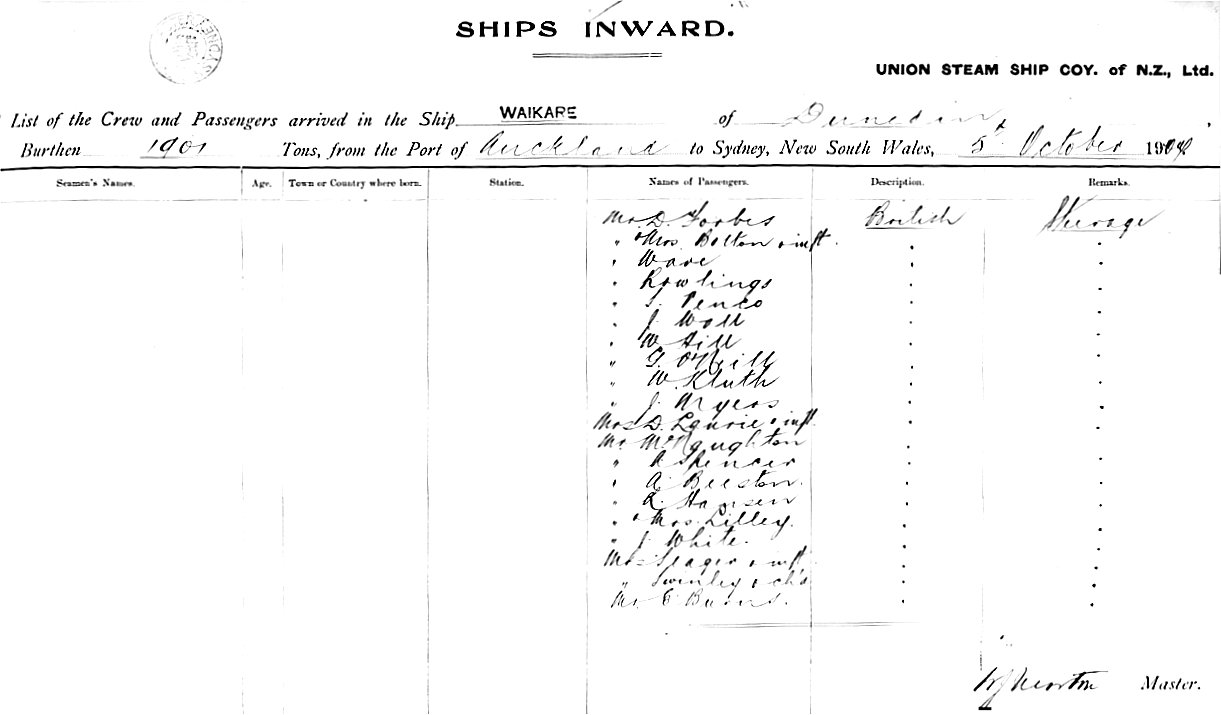 SHIPS INWARD.
UNION STEAM SHIP COY. of N.Z., Ltd.
List of the Crew and Passengers arrived in the Ship WAIKARE of Dunedin
Burthen 1901 Tons, from the Port of Auckland to Sydney, New South Wales, 5th October 190
Seamen's Names. Age. Town or Country where born. Station. Names of Passengers. Description. Remarks.
Mr. D. Forbes British Steerage
" & Mrs Bolton & inft. " "
" Ware " "
" Rowlings " "
" S. Penco " "
" J. Wall " "
" W. Hill " "
" G. O'Neill " "
" W. Kluth " "
" J. Myers " "
Mrs D. Laurie & inft. " "
Mr. McNaughton " "
" A Spencer " "
" A. Beeston. " "
" R. Hansen " "
" & Mrs. Lilley. " "
" J. White. " "
Mrs Seager & inft " "
" Swinley & ch'd " "
Mr. C Burns. " "
Master.